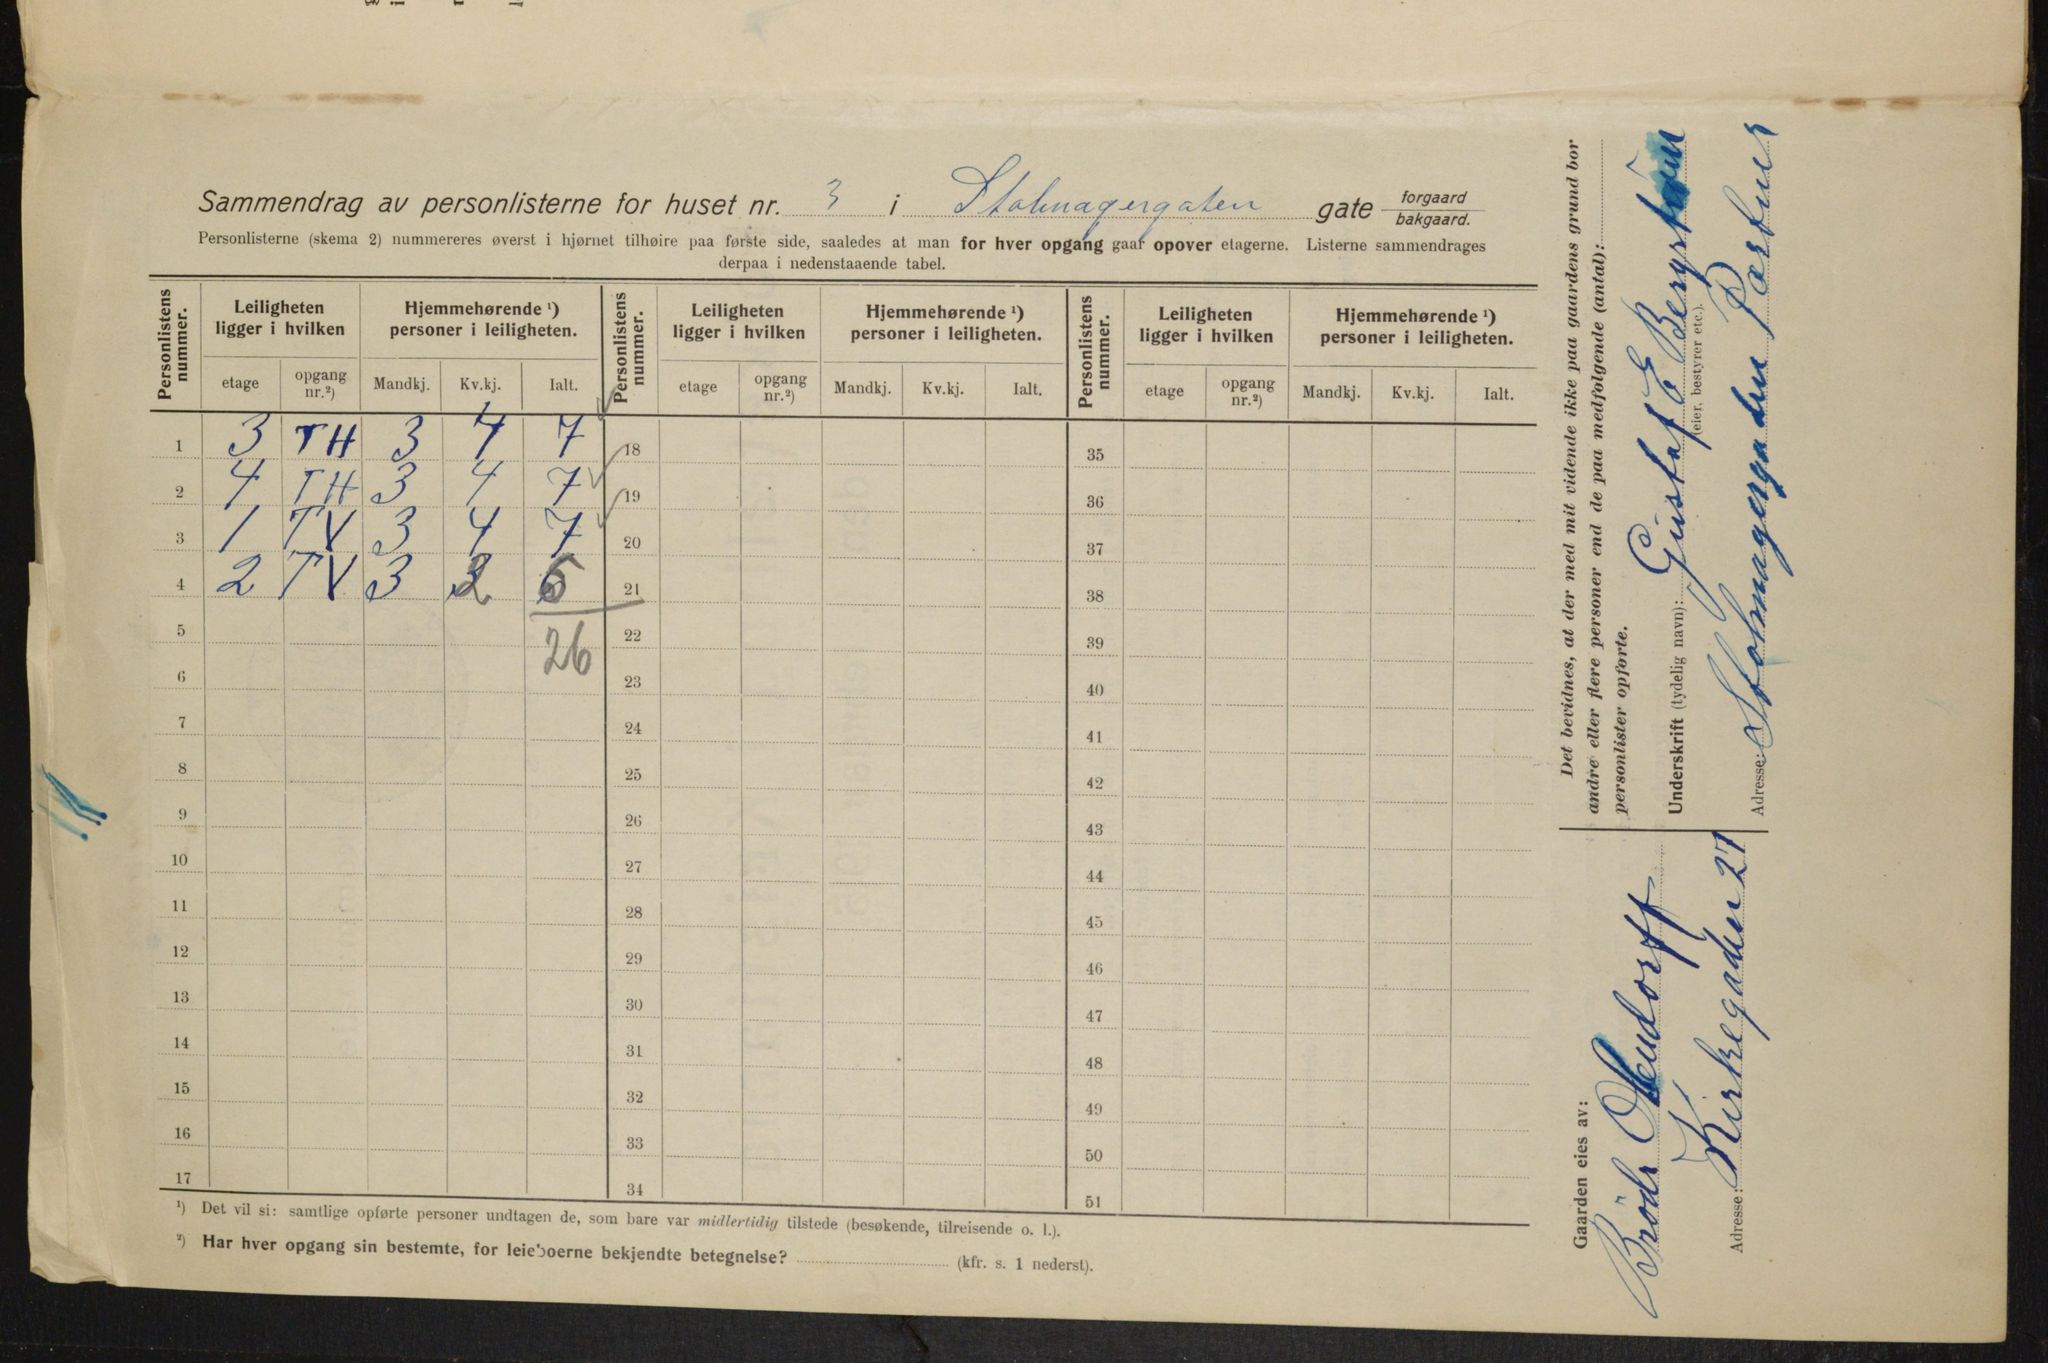 Sammendrag av personlisterne for huset nr. 3 i Stolmagergaten gate forgaard bakgaard.
Personlisterne (skema 2) nummereres øverst i hjørnet tilhøire paa første side, saaledes at man for hver opgang gaar opover etagerne. Listerne sammendrages
derpaa i nedenstaaende tabel.
Personlistens nummer. Leiligheten ligger i hvilken Hjemmehørende ¹) personer i leiligheten. Personlistens nummer. Leiligheten ligger i hvilken Hjemmehørende ¹) personer i leiligheten. Personlistens nummer. Leiligheten ligger i hvilken Hjemmehørende ¹) personer i leiligheten.
etage opgang nr.²) Mandkj. Kv.kj. Ialt. etage opgang nr.²) Mandkj. Kv.kj. Ialt. etage opgang nr.²) Mandkj. Kv.kj. Ialt.
1 3 TH 3 4 7 18 35
2 4 TH 3 4 7 19 36
3 1 TV 3 4 7 20 37
4 2 TV 3 2 5 21 38
5 22 39
26
6 23 40
7 24 41
8 25 42
9 26 43
10 27 44
11 28 45
12 29 46
13 30 47
14 31 48
15 32 49
16 33 50
17 34 51
¹) Det vil si: samtlige opførte personer undtagen de, som bare var midlertidig tilstede (besøkende, tilreisende o. l.).
²) Har hver opgang sin bestemte, for leieboerne bekjendte betegnelse? (kfr. s. 1 nederst).
Det bevidnes, at der med mit vidende ikke paa gaardens grund bor
andre eller flere personer end de paa medfølgende (antal):
personlister opførte.
Underskrift (tydelig navn): Gustaf E Bergström
(eier, bestyrer etc.).
Adresse: Stolmagergaden
Gaarden eies av:
Brödr
Adresse: Kirkegaden 27